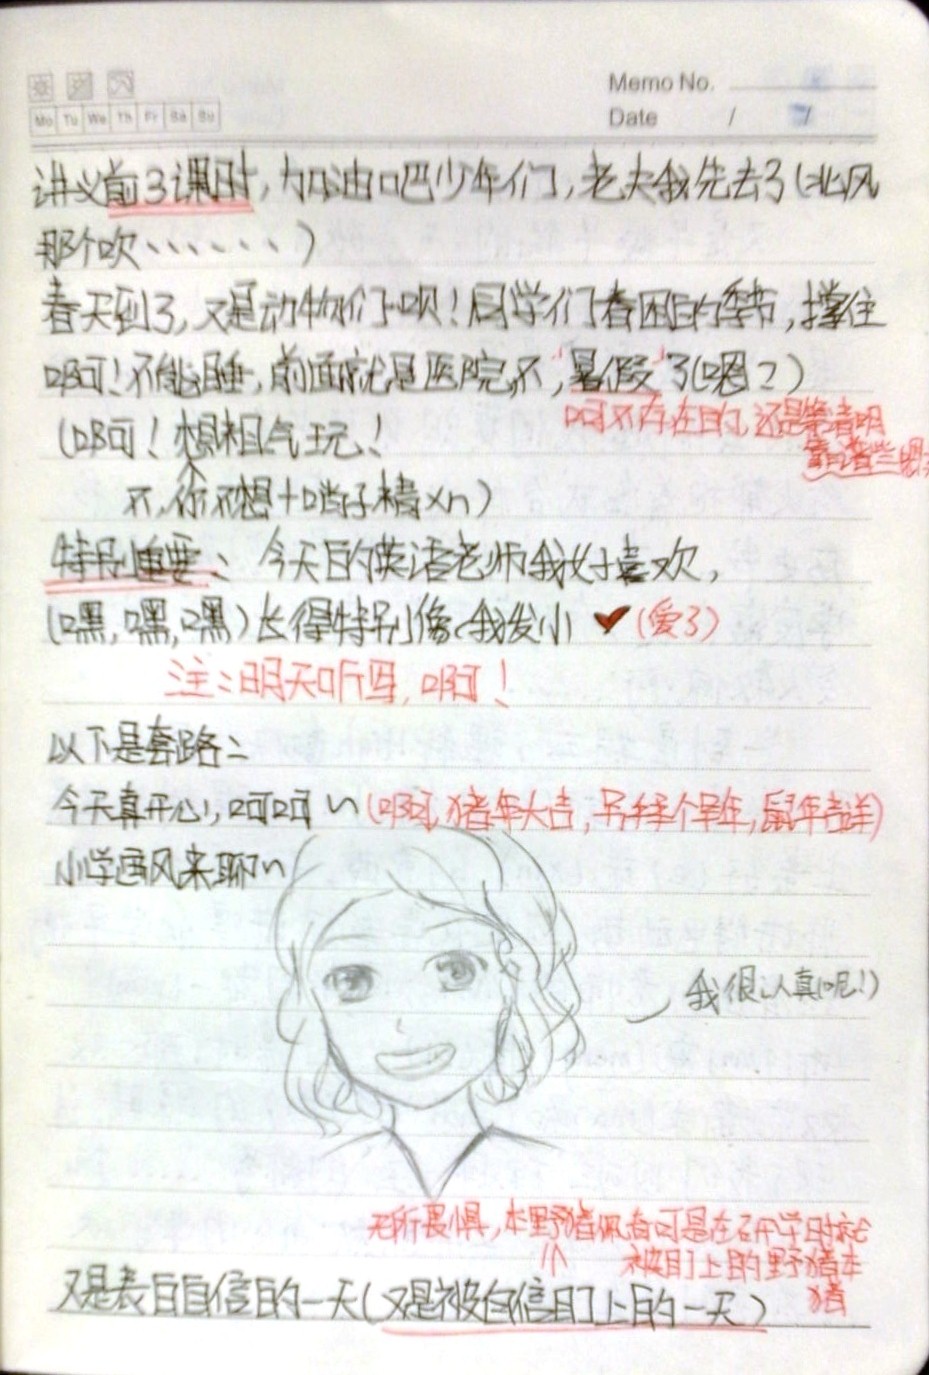 Memo No.
Mo Tu We Th Fr Sa Su
Date / /
讲义前3课时,加油吧少年们,老夫我先去了(北风
那个吹、、、、、、)
春天到了,又是动物们…呗!同学们春困的季节,撑住
啊!不能睡,前面就是医院,不,"暑假"了(嗯?)
呵不存在的,还是等清明
(啊!想租气玩!
不,你不想+啥子精×n)
特别重要: 今天的英语老师我好喜欢,
(嘿,嘿,嘿)长得特别像我发小 ❤ (爱了)
注:明天听写,啊!
以下是套路:
今天真开心,呵呵~(啊,猪年大吉,另择个早年,鼠年吉祥)
小学画风来聊~
我很认真(呢!)
无所畏惧,本野猪佩奇可是在开学时就
被盯上的野猪本
猪
又是表白自信的一天(又是被自信盯上的一天)